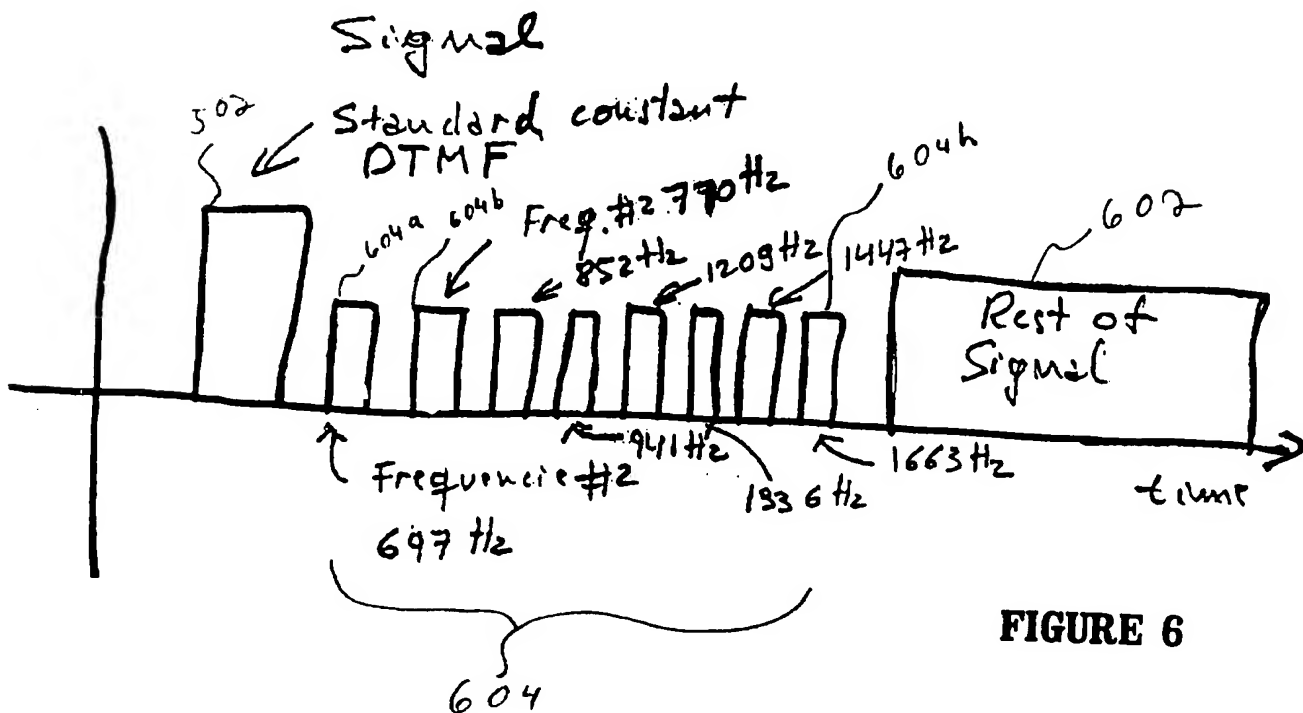 Signal
502
Standard constant
DTMF
604a
604b
Freq. #2 770 Hz
852 Hz
1209 Hz
1447 Hz
604h
602
Rest of
Signal
Frequencie #2
697 Hz
941 Hz
1336 Hz
1663 Hz
time
604
FIGURE 6